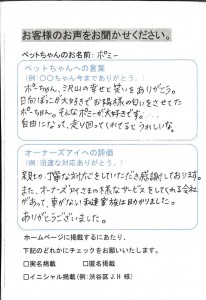 お客様のお声をお聞かせください。
ペットちゃんのお名前: ポミー
ペットちゃんへの言葉
(例:○○ちゃん今までありがとう。)
ポーちゃん、沢山の幸せと笑いをありがとう。
日向ぼっこが大好きでお陽様の匂いをさせた
ポーちゃん。そんなポミーが大好きです。
自由になって、走り回ってくれてるとうれしいな。
オーナーズアイへの評価
(例:迅速な対応ありがとう。)
親切、丁寧な対応をしていただき感謝しております。
また、オーナーズアイさまの様なサービスをしてくれる会社
があって、車がない私達家族は助かりました。
ありがとうございました。
ホームページに掲載するにあたり、
下記のどれかにチェックをお願いいたします。
□実名掲載 □匿名掲載
□イニシャル掲載(例:渋谷区 J.H 様)